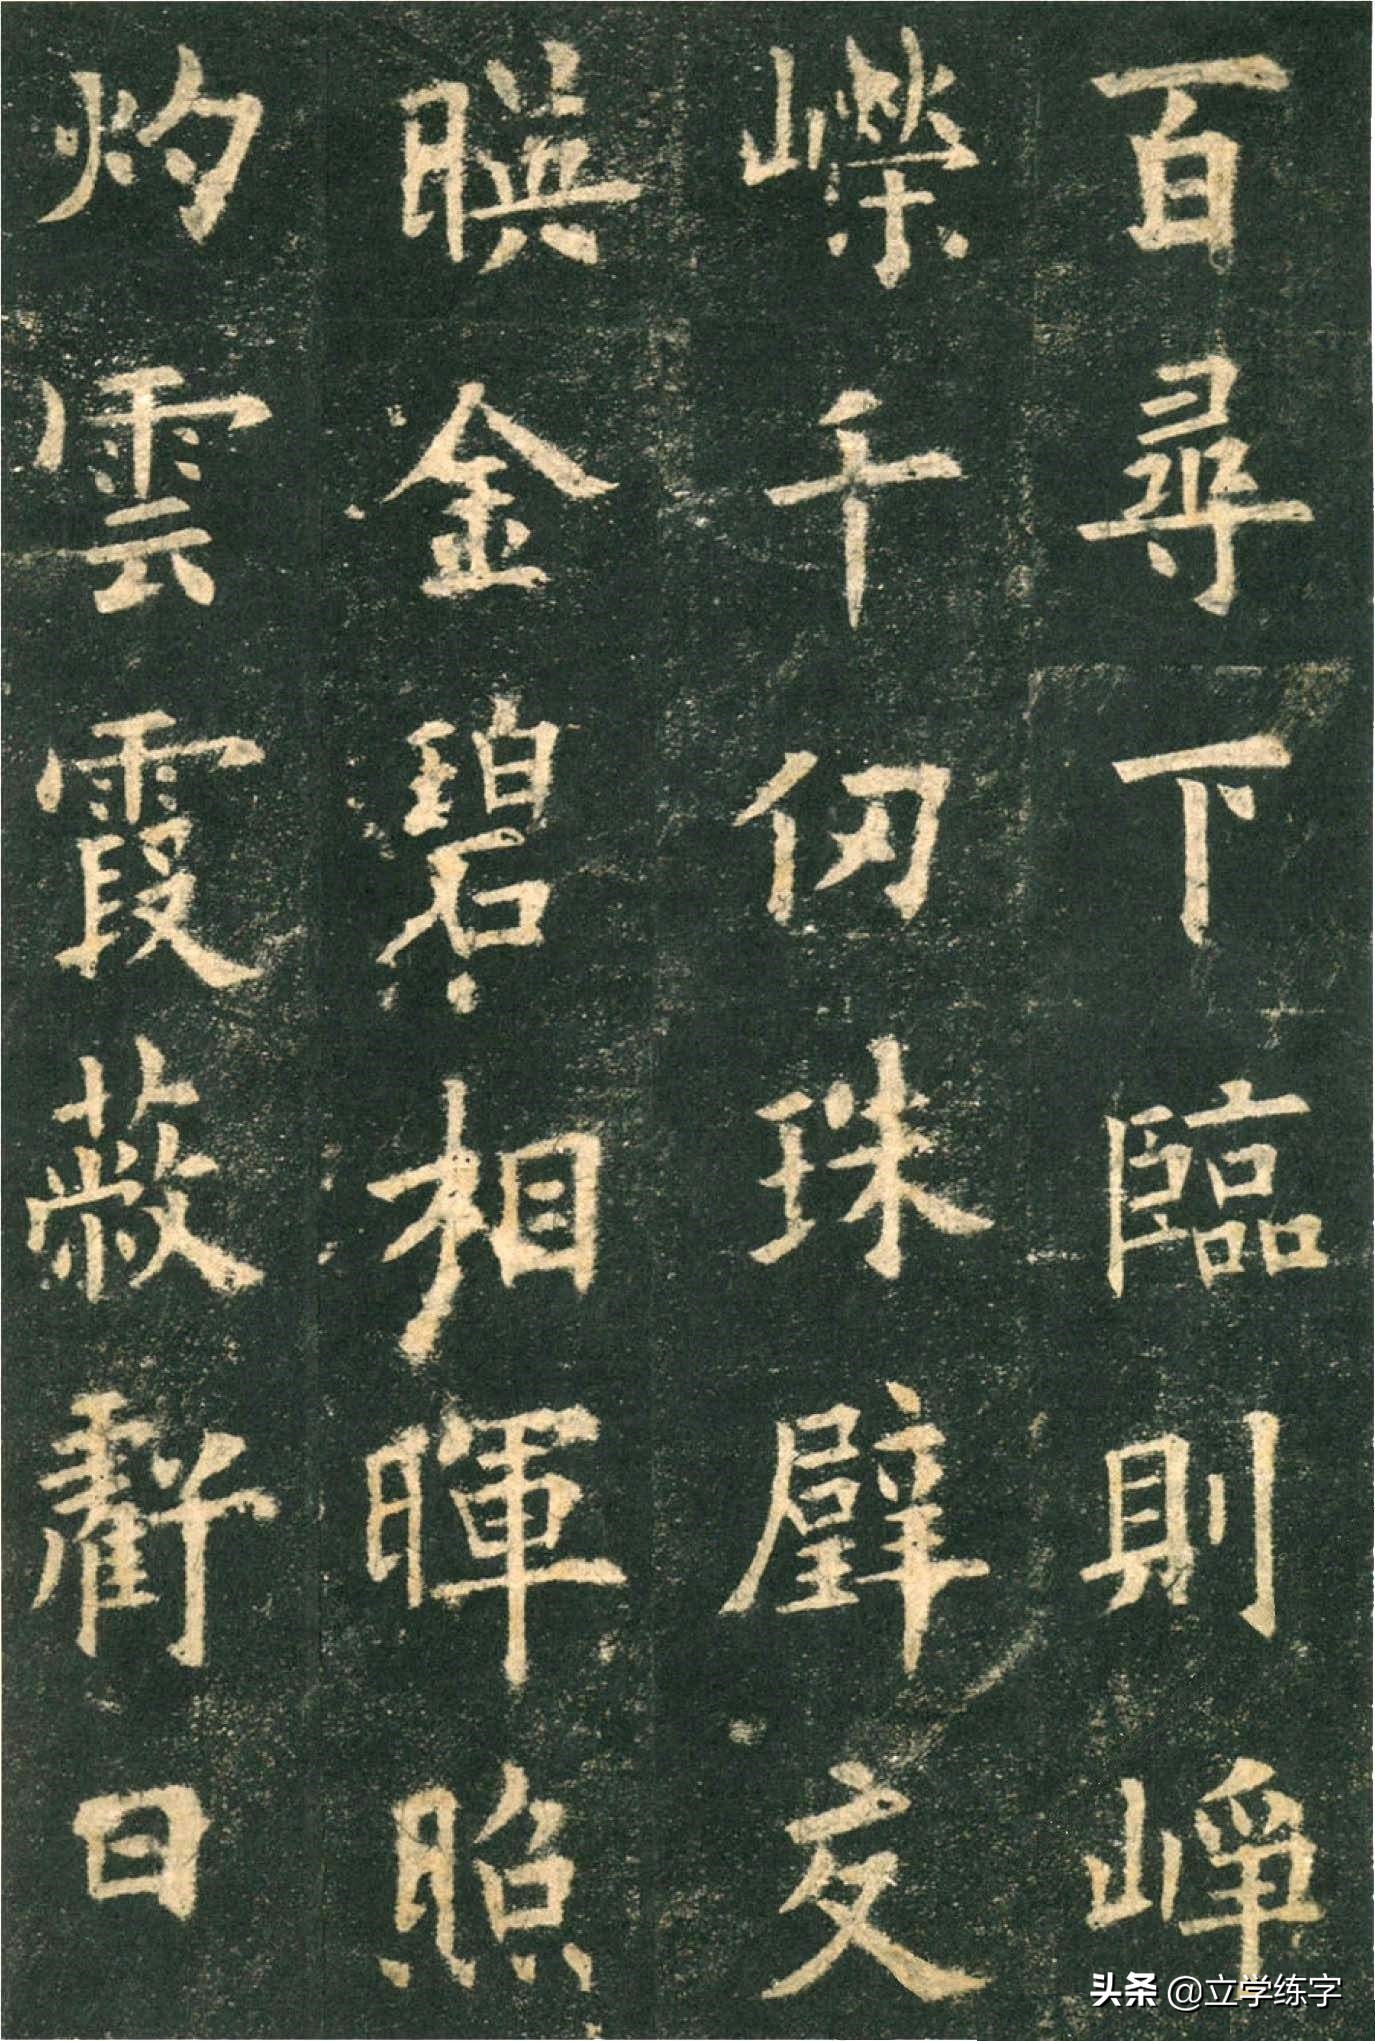 百尋下臨則崢
嶸千仞珠璧交
暎金碧相暉照
灼雲霞蔽虧日
头条 @立学练字